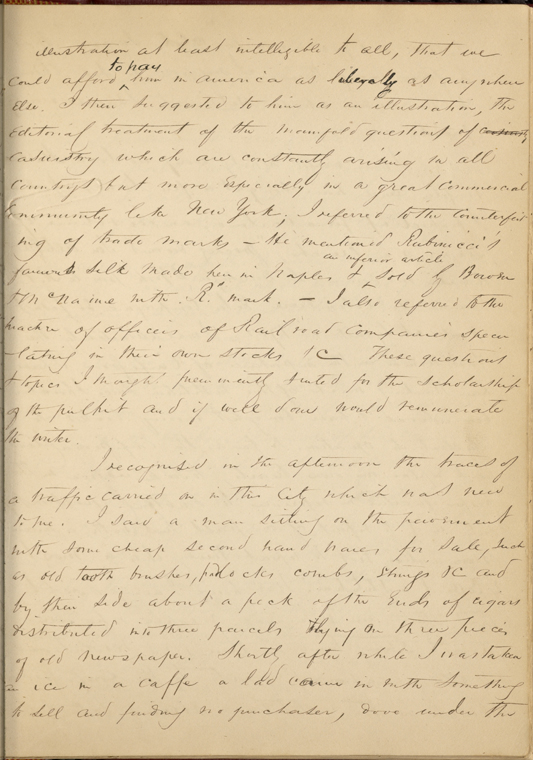 illustration at least intelligible to all, that we
could afford to pay him in America as liberally as anywhere
else. I then suggested to him as an illustration, the
editorial treatment of the manifold questions of
casuistry which are constantly arising in all
countrys but more especially in a great commercial
community like New York; I referred to the counterfeit
ing of trade marks — He mentioned Rubinacci's
famous silk made here in Naples & an inferior article sold by Brown
with "R." mark. — I also referred to the
practice of officers of Railroad Companies specu
lating in their own stocks &c These questions
& topics I thought preeminently suited for the scholarship
of the pulpit and if well done would remunerate
the writer.
I recognised in the afternoon the traces of
a traffic carried on in this City which was new
to me. I saw a man sitting on the pavement
with some cheap second hand wares for sale, such
as old tooth brushes, padlocks combs, strings &c and
by their side about a peck of the ends of cigars
distributed into three parcels lying on three pieces
of old newspaper. Shortly after while I was taking
an ice in a caffe a lad came in with something
to sell and finding no purchaser, dove under the